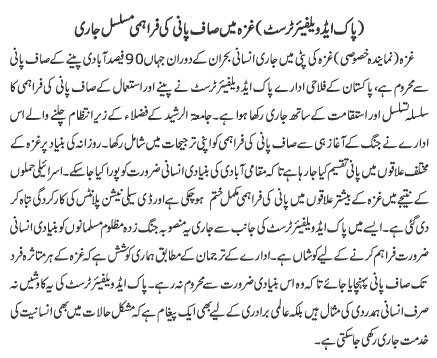 (پاک ایڈ ویلفیئر ٹرسٹ) غزہ میں صاف پانی کی فراہمی مسلسل جاری
غزہ (نمایندہ خصوصی) غزہ کی پٹی میں جاری انسانی بحران کے دوران جہاں 90 فیصد آبادی پینے کے صاف پانی
سے محروم ہے، پاکستان کے فلاحی ادارے پاک ایڈ ویلفیئر ٹرسٹ نے پینے اور استعمال کے صاف پانی کی فراہمی کا
سلسلہ تسلسل اور استقامت کے ساتھ جاری رکھا ہوا ہے۔ جامعۃ الرشید کے فضلاء کے زیر انتظام چلنے والے اس
ادارے نے جنگ کے آغاز ہی سے صاف پانی کی فراہمی کو اپنی ترجیحات میں شامل رکھا۔ روزانہ کی بنیاد پر غزہ کے
مختلف علاقوں میں پانی تقسیم کیا جا رہا ہے تاکہ مقامی آبادی کی بنیادی انسانی ضرورت کو پورا کیا جا سکے۔ اسرائیلی حملوں
کے نتیجے میں غزہ کے بیشتر علاقوں میں پانی کی فراہمی مکمل ختم ہو چکی ہے اور ڈی سیلی نیشن پلانٹس کی کارکردگی تباہ کر
دی گئی ہے۔ ایسے میں پاک ایڈ ویلفیئر ٹرسٹ کی جانب سے جاری یہ منصوبہ جنگ زدہ مظلوم مسلمانوں کو بنیادی انسانی
ضرورت فراہم کرنے کے لیے کوشاں ہے۔ ادارے کے ترجمان کے مطابق ہماری کوشش ہے کہ غزہ کے ہر متاثرہ فرد
تک صاف پانی پہنچایا جائے تاکہ وہ اس بنیادی ضرورت سے محروم نہ رہے۔ پاک ایڈ ویلفیئر ٹرسٹ کی یہ کاوشیں نہ
صرف انسانی ہمدردی کی مثال ہیں بلکہ عالمی برادری کے لیے بھی ایک پیغام ہے کہ مشکل حالات میں بھی انسانیت کی
خدمت جاری رکھی جا سکتی ہے۔